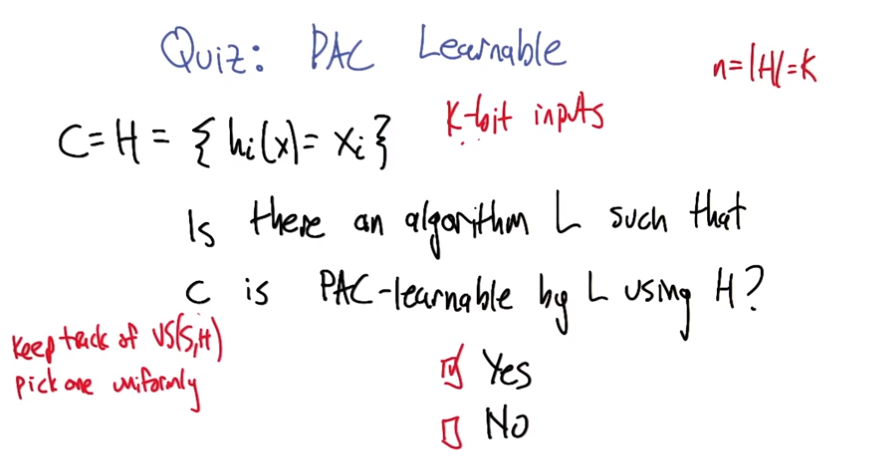 Quiz: PAC Learnable
n=|H|=K
K-bit inputs
C=H = { hi(x)= xi }
Is there an algorithm L such that
C is PAC-learnable by L using H?
Keep track of VS(S,H)
pick one uniformly
Yes
No